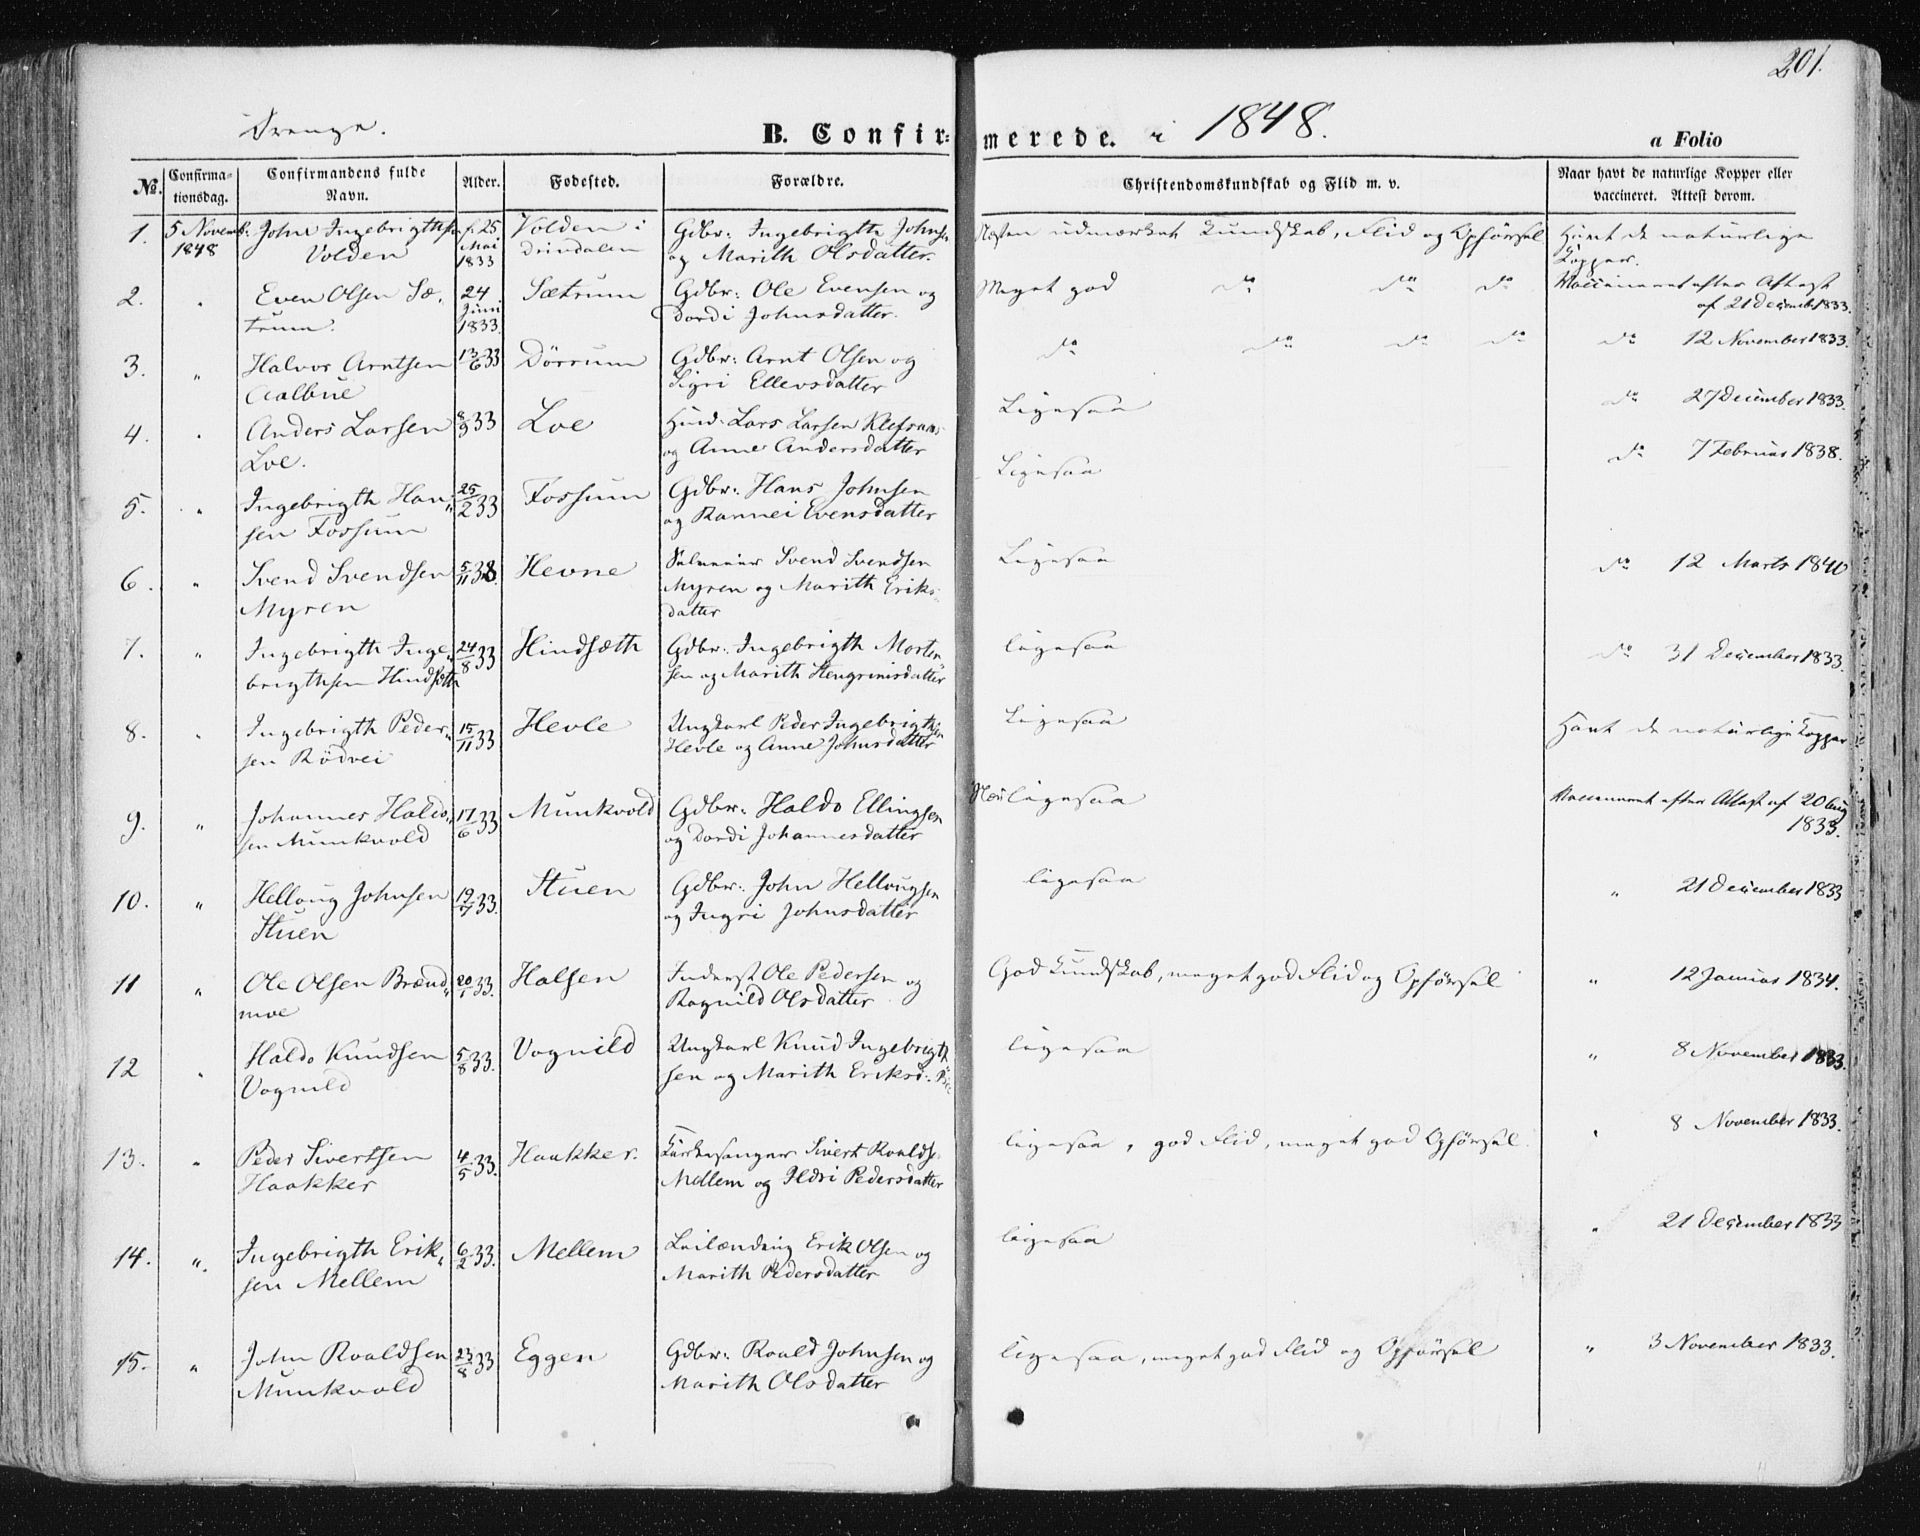 201.
Drenge.
B. Confirmerede. i 1848.
a Folio
No. Confirmationsdag. Confirmandens fulde Navn. Alder. Fødested. Forældre. Christendomskundskab og Flid m. v. Naar havt de naturlige Kopper eller vaccineret. Attest derom.
1. 5 Novemb: John Ingebrigthsen f. 25 Volden i Gdbr: Ingebrigth Johnsen Næsten udmærket Kundskab, Flid og Opførsel Havt de naturlige
1848 Volden Mai 1833 Drivdalen og Marith Olsdatter. Kopper.
2. " Even Olsen Sæ- 24 Sætrum Gdbr: Ole Evensen og Meget god do do do Vaccineret efter Attest
trum. Juni 1833. Dordi Johnsdatter. af 21 Decemb 1833.
3. " Halvor Arntsen 13/6 33 Dörrum Gdbr: Arnt Olsen og do do do do do 12 November 1833.
Aalbue Sigri Ellevsdatter
4. " Anders Larsen 8/9 33 Loe Lars Larsen Ligesaa do 27 December 1833.
Loe. og Anne Andersdatter
5. " Ingebrigth Han- 25/2 33 Fossum Gdbr: Hans Johnsen Ligesaa do 7 Februar 1838.
sen Fossum og Rannei Evensdatter
6. " Svend Svendsen 5/11 33. Hevne Svend Svendsen Ligesaa do 12 Marts 1840
Myren Myren og Marith Eriks-
datter
7. " Ingebrigth Inge- 24/8 33 Hindsæth Gdbr: Ingebrigth Morten- ligesaa do 31 December 1833.
brigthsen Hindsæth sen og Marith Stengrimsdatter
8. " Ingebrigth Peder- 15/11 33 Hevle Ungkarl Peder Ingebrigthsen Ligesaa Havt de naturlige Kopper
sen Rödvei Hevle og Anne Johnsdatter
9. " Johannes Haldo- 17/6 33 Munkvold Gdbr: Haldo Ellingsen ligesaa Vaccineret efter Attest af 20 Aug
sen Munkvold og Dordi Johannesdatter 1833.
10. " Helloug Johnsen 19/7 33. Stuen Gdbr: John Hellougsen ligesaa " 21 December 1833
Stuen og Ingri Johnsdatter
11 " Ole Olsen Brænd- 20/1 33. Halsen Inderst Ole Pedersen og God Kundskab, meget god Flid og Opførsel " 12 Januar 1834.
moe Ragnild Olsdatter
12 " Haldo Knudsen 5/8 33. Vognild Ungkarl Knud Ingebrigth- ligesaa " 8 November 1833.
Vognild sen og Marith Eriksd:
13. " Peder Sivertsen 4/5 33. Haakker. Kirkesanger Sivert Roalds. ligesaa, god Flid, meget god Opførsel. " 8 November 1833.
Haakker Mellem og Ildri Pedersdatter
14. " Ingebrigth Erik- 6/2 33. Mellem Leilænding Erik Olsen og ligesaa " 21 December 1833
sen Mellem Marith Pedersdatter
15. " John Roaldsen 23/8 33 Eggen Gdbr: Roald Johnsen og ligesaa, meget god Flid og Opførsel " 3 November 1833.
Munkvold Marith Olsdatter